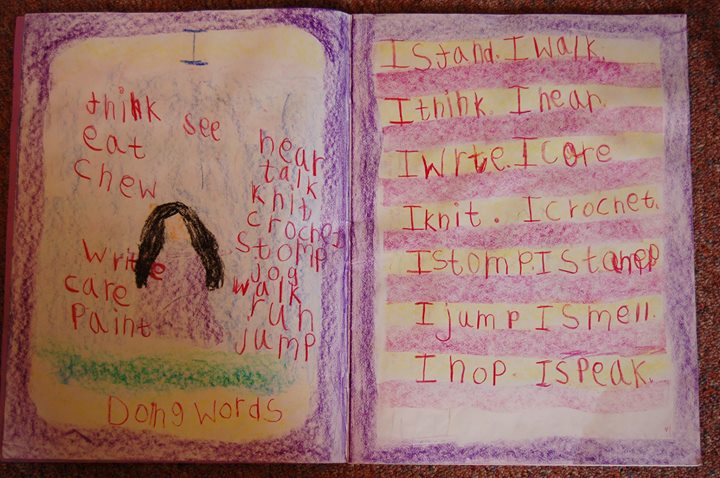 I
think see
eat
chew
hear
talk
knit
crochet
stomp
jog
walk
run
jump
write
care
paint
Doing words
I Stand. I walk.
I think. I hear.
I write. I Care
I knit. I crochet.
I stomp. I stamp
I jump I smell.
I hop. I speak.